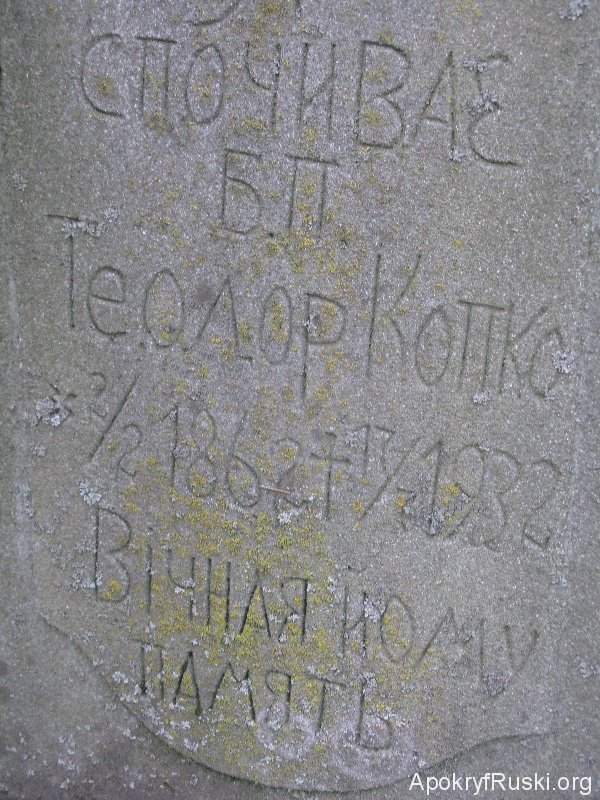 СПОЧИВАЄ
Б.П
Теодор Копко
* 2/2 1862 + 17/1 1932
Вічная йому
память
ApokryfRuski.org